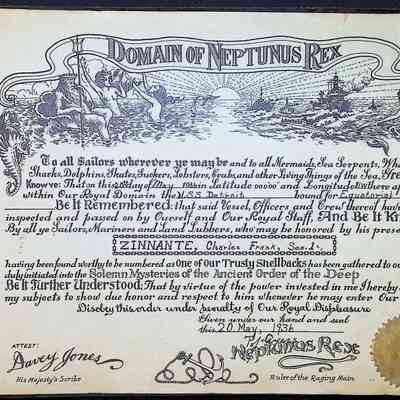 Domain of Neptunus Rex
To all Sailors wherever ye may be and to all Mermaids, Sea Serpents, Wha
Sharks, Dolphins, Skates, Suckers, Lobsters, Crabs, and other Living Things of the Sea, Gre
Know ye: That on this 20 day of May 1936 in Latitude 00000 and Longitude there a
within Our Royal Domain the U.S.S. Detroit bound for Equatorial
Be It Remembered: that said Vessel, Officers and Crew thereof hav
inspected and passed on by Ourself and Our Royal Staff, And Be It K
By all ye Sailors, Mariners and Land Lubbers, who may be honored by his prese
ZINNANTE, Charles Frank, Sea.1c.
having been found worthy to be numbered as One of our Trusty Shellbacks has been gathered to ou
duly initiated into the Solemn Mysteries of the Ancient Order of the Deep
Be It Further Understood: That by virtue of the power invested in me I hereby
my subjects to show due honor and respect to him whenever he may enter Our
Disobey this order under penalty of Our Royal Displeasure
Given under our hand and seal
this 20 May, 1936
Attest:
Davey Jones
His Majesty's Scribe
Neptunus Rex
Ruler of the Raging Main